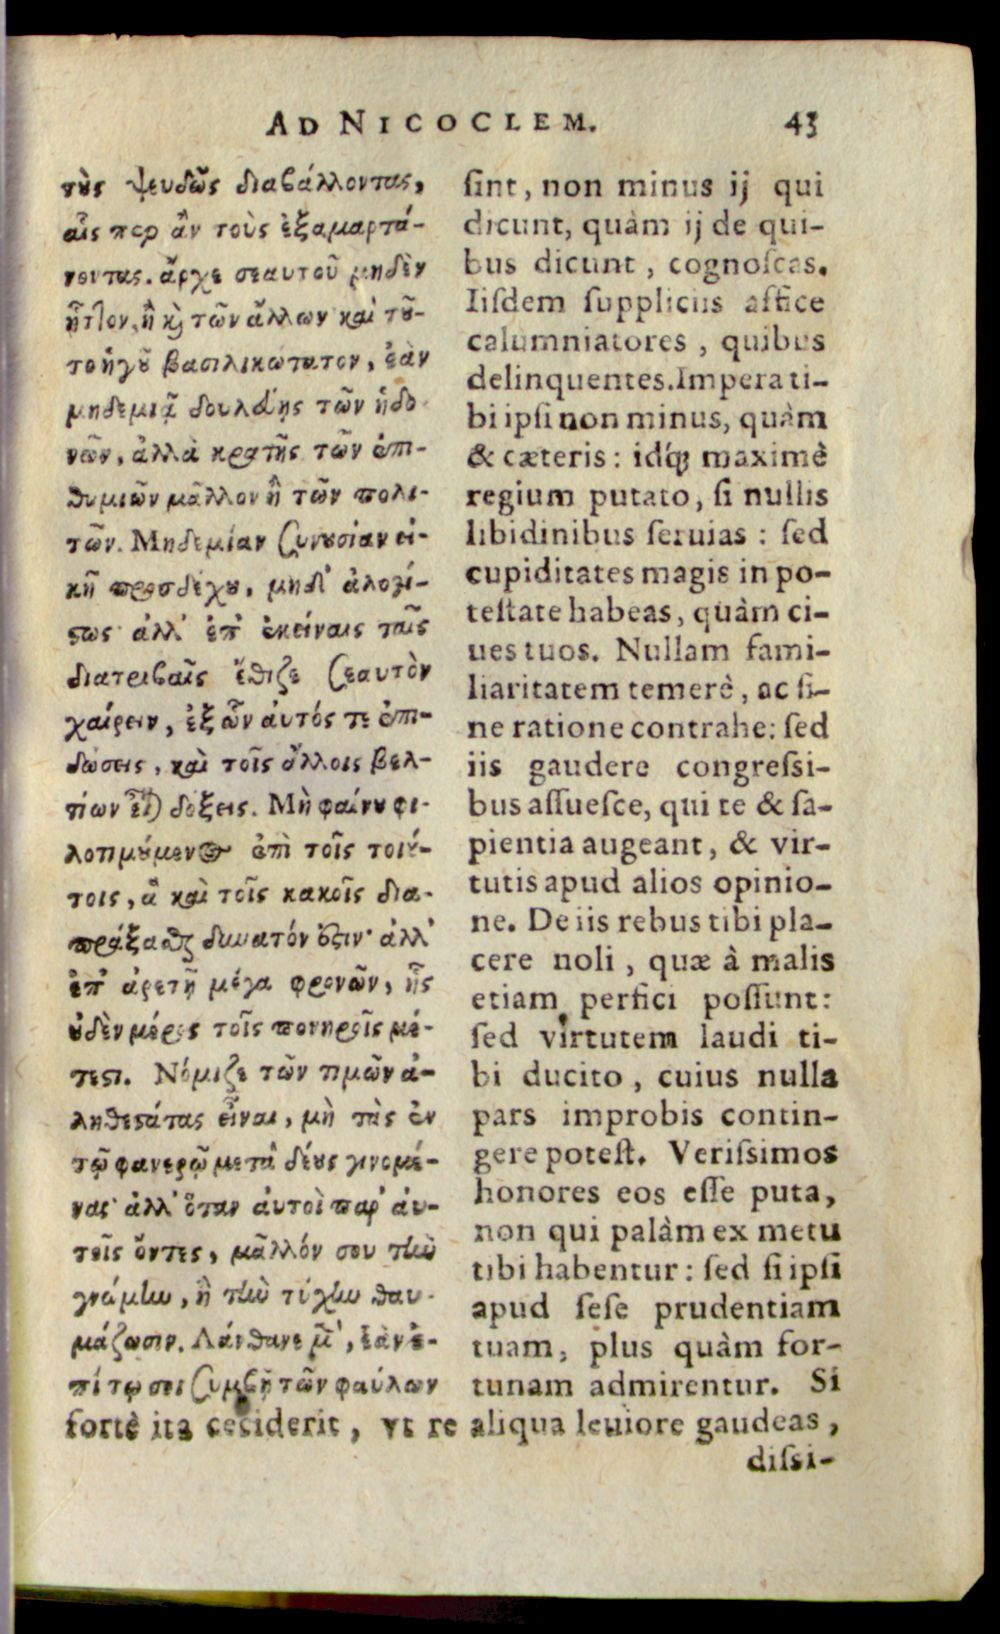 AD NICOCLEM. 43
τοὺς ψευδῶς διαβάλλοντας,
αἷς περ ἂν τοὺς ἐξαμαρτά-
νοντας. ἄρχε σεαυτοῦ μηδὲν
ἧττον, ἢ καὶ τῶν ἄλλων καὶ τοῦ-
το ἡγοῦ βασιλικώτατον, ἐὰν
μηδεμιᾷ δουλεύῃς τῶν ἡδο
νῶν, ἀλλὰ κρατῇς τῶν ἐπι-
θυμιῶν μᾶλλον ἢ τῶν πολι-
τῶν. Μηδεμίαν συνουσίαν εἰ-
κῆ προσδέχου, μηδ' ἀλογί-
στως· ἀλλ' ἐπ' ἐκείναις ταῖς
διατριβαῖς ἔθιζε σεαυτὸν
χαίρειν, ἐξ ὧν αὐτός τε ἐπι-
δώσεις, καὶ τοῖς ἄλλοις βελ-
τίων εἶναι δόξεις. Μὴ φαίνου φι-
λοτιμούμενος ἐπὶ τοῖς τοιού-
τοις, ἃ καὶ τοῖς κακοῖς δια-
πράξασθαι δυνατόν ἐστιν· ἀλλ'
ἐπ' ἀρετῇ μέγα φρονῶν, ἧς
οὐδὲν μέρος τοῖς πονηροῖς μέ-
τεστι. Νόμιζε τῶν τιμῶν ἀ-
ληθεστάτας εἶναι, μὴ τὰς ἐν
τῷ φανερῷ μετὰ δέους γινομέ-
νας· ἀλλ' ὅταν αὐτοὶ παρ' αὑ-
τοῖς ὄντες, μᾶλλόν σου τὴν
γνώμην, ἢ τὴν τύχην θαυ-
μάζωσιν. Λάνθανε μὲν, ἐὰν ἐ-
πί τῳ σοι συμβῇ τῶν φαύλων
sint, non minus ij qui
dicunt, quàm ij de qui-
bus dicunt, cognoscas.
Iisdem suppliciis affice
calumniatores, quibus
delinquentes. Impera ti-
bi ipsi non minus, quàm
& cæteris: idq́; maximè
regium putato, si nullis
libidinibus seruias: sed
cupiditates magis in po-
testate habeas, quàm ci-
ues tuos. Nullam fami-
liaritatem temerè, ac si-
ne ratione contrahe: sed
iis gaudere congressi-
bus assuesce, qui te & sa-
pientia augeant, & vir-
tutis apud alios opinio-
ne. De iis rebus tibi pla-
cere noli, quæ à malis
etiam perfici possunt:
sed virtutem laudi ti-
bi ducito, cuius nulla
pars improbis contin-
gere potest. Verissimos
honores eos esse puta,
non qui palàm ex metu
tibi habentur: sed si ipsi
apud sese prudentiam
tuam, plus quàm for-
tunam admirentur. Si
fortè ita ceciderit, vt re aliqua leuiore gaudeas,
dissi-